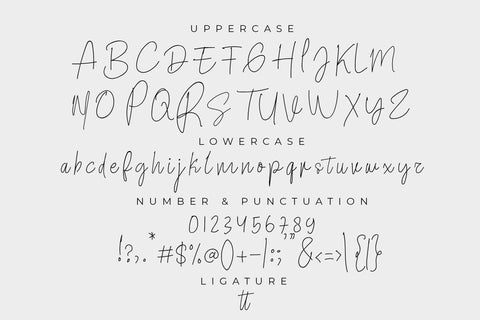 UPPERCASE
ABCDEFGHIJKLM
NOPQRSTUVWXYZ
LOWERCASE
abcdefghijklmnopqrstuvwxyz
NUMBER & PUNCTUATION
0123456789
!?,.*#$%@()+-/:;,"&<=>|\{|}
LIGATURE
tt